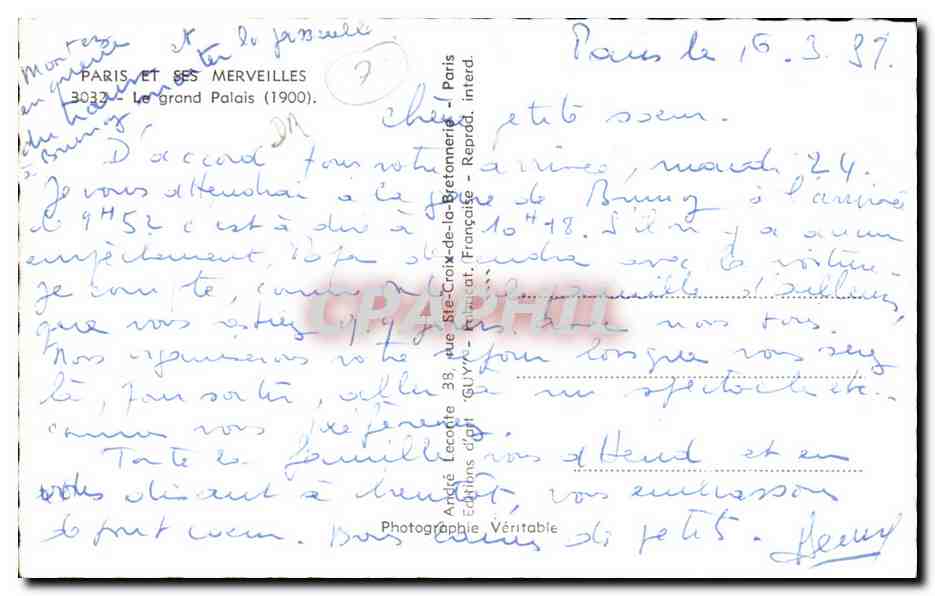 Montez et la passerelle
en queue
du train
à Brunoy monter
PARIS ET SES MERVEILLES
3032 - Le grand Palais (1900).
7
DR
Paris le 16.3.
Chère petite sœur.
D'accord pour votre arrivée, mardi 24.
Je vous attendrai à la gare de Brunoy à l'arrivée
de 9H52 c'est à dire à 10H18. S'il n'y a aucun
empêchement, Papa viendra avec la voiture.
Je compte, comme la famille d'ailleurs,
que vous jours avec nous tous.
Nous organiserons votre séjour lorsque vous serez
là, pour sortir, aller à un spectacle etc..
comme vous préférerez.
Toute la famille vous attend et en
vous disant à bientôt, vous embrassons
de tout cœur. Bons baisers des petits.
André Leconte 38, rue Ste-Croix-de-la-Bretonnerie - Paris
Editions d'art "GUY" - Fabricat. Française - Reprod. interd.
Photographie Véritable
CPAPHIL